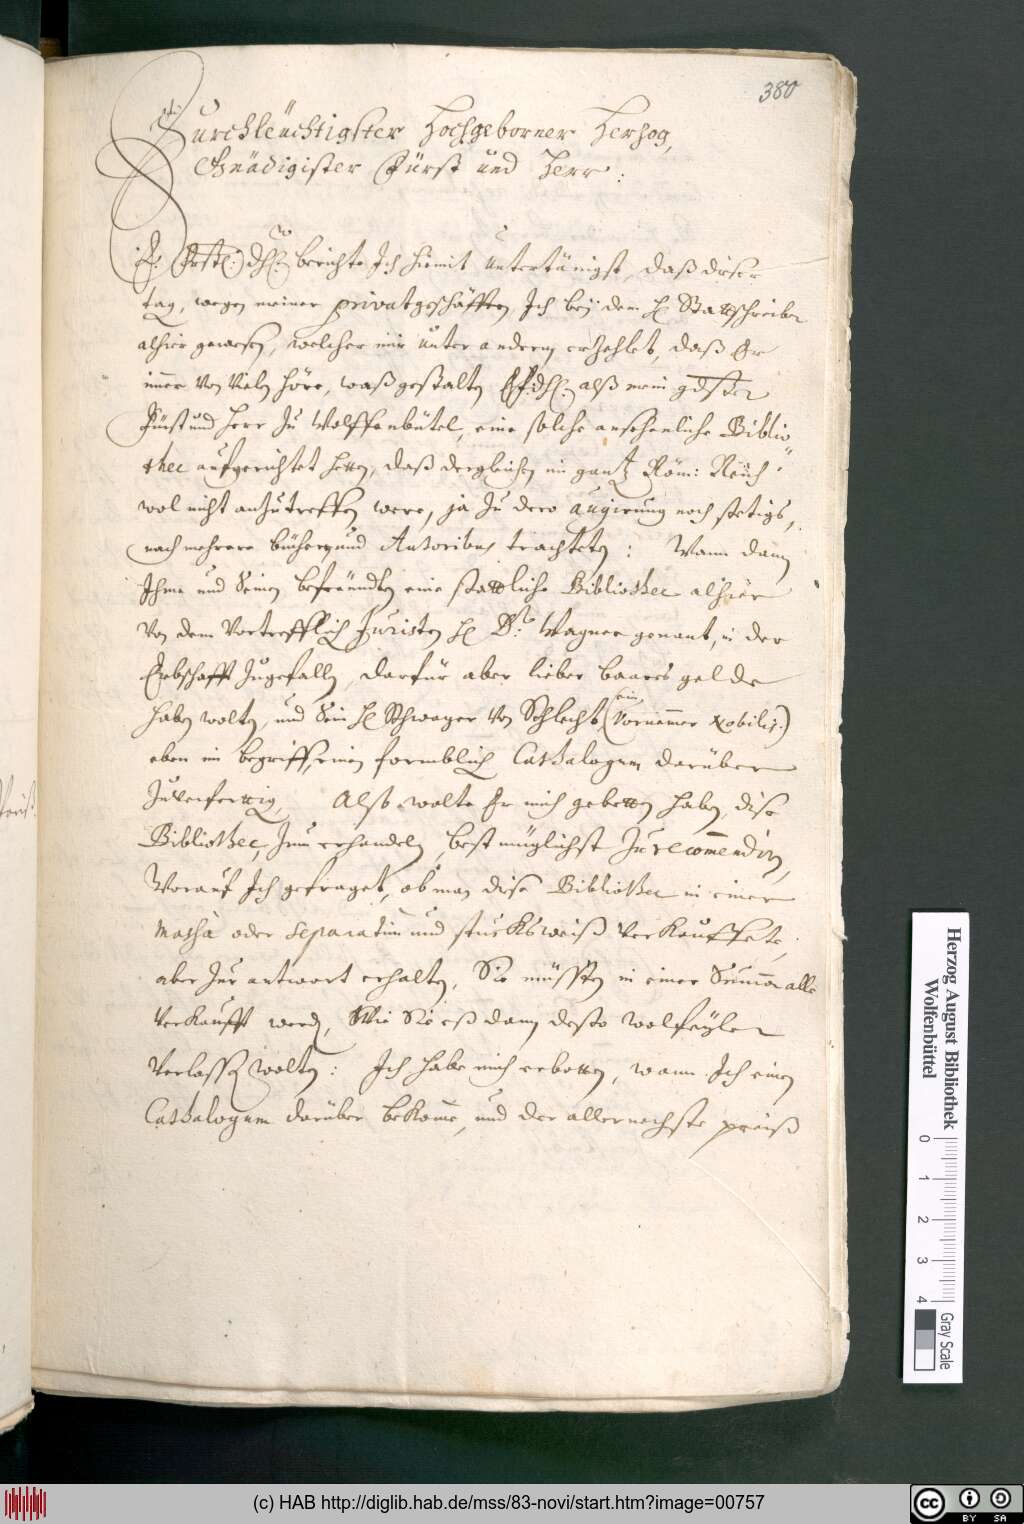 380
Durchleüchtigster Hochgeborner Herzog,
Gnädigister Fürst und Herr:
E: Frstl: Dhl: berichte Ich hiemit untertänigst, daß diser
tag, wegen meiner privatgeschäfften Ich beÿ dem H Stattschreiber
alhier gewesen, welcher mir unter anderm erzehlet, daß Er
imer von vielen höre, waß gestalten E F: Dhl: alß mein gdster
Fürst und Herr zu Wolffenbütel, eine solche ansehenliche Biblio
thec aufgerichtet hetten, daß dergleichen im gantz Röm: Reich
wol nicht anzutreffen were, ja zu dero augirung noch stetigs,
nach mehrere bücher und Autoribus trachteten: Wann dann
Ihme und Seinen befreündten eine stattliche Bibliothec alhier
von dem vortrefflich Juristen H Dr: Wagner genant, in der
Erbschafft zugefallen, darfür aber lieber baares gelde
haben wolten, und Sein H Schwager von Schlecht (ein vornemmer Nobilis.)
eben im begriff, einen formblich Cathalogum darüber
zuverfertig, Alß wolte Er mich gebetten haben, dise
Bibliothec, zum erhandeln, best müglichst zu recomendirn,
Worauf Ich gefraget, ob man dise Bibliothec in einer
Massa oder separatim und stucksweiß verkauffete,
aber zur antwort erhalten, Sie müssten in einer Summa alle
verkaufft werden, Wie Sie eß dann desto wolfeyler
verlassen wolten: Ich habe mich erbotten, wann Ich einen
Cathalogum darüber bekome, und der allernechste preiß
Herzog August Bibliothek
Wolfenbüttel
0 1 2 3 4
Gray Scale
(c) HAB http://diglib.hab.de/mss/83-novi/start.htm?image=00757
cc BY SA